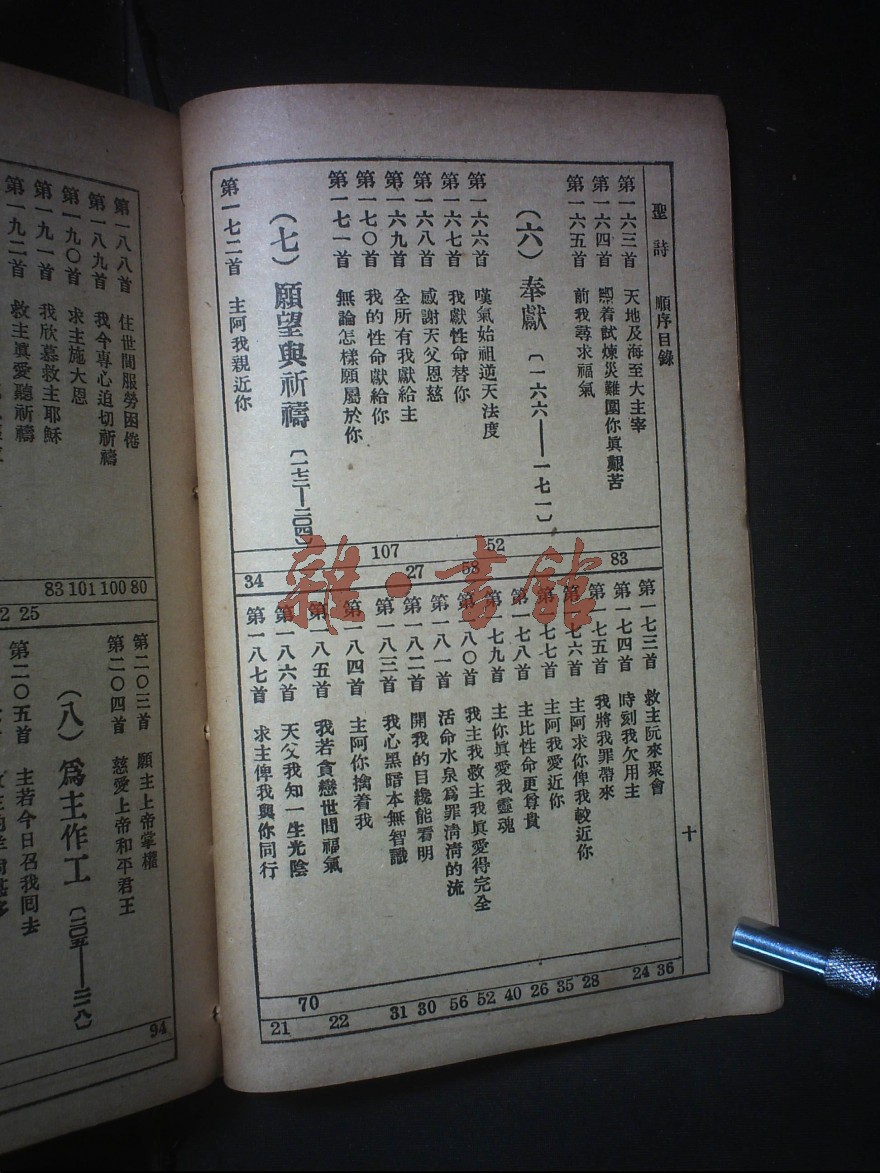 聖詩 順序目錄
十
第一六三首 天地及海至大主宰
第一六四首 照着試煉災難圍你眞艱苦
第一六五首 前我尋求福氣
(六) 奉獻 〔一六六——一七一〕
第一六六首 嘆氣始祖逆天法度
第一六七首 我獻性命替你
第一六八首 感謝天父恩慈
第一六九首 全所有我獻給主
第一七〇首 我的性命獻給你
第一七一首 無論怎樣願屬於你
(七) 願望與祈禱 〔一七二—二〇四〕
第一七二首 主阿我親近你
34 107 27 58 52 83
第一七三首 救主阮來聚會
第一七四首 時刻我欠用主
第一七五首 我將我罪帶來
第一七六首 主阿求你俾我較近你
第一七七首 主阿我愛近你
第一七八首 主比性命更尊貴
第一七九首 主你眞愛我靈魂
第一八〇首 我主我救主我眞愛得完全
第一八一首 活命水泉爲罪淸淸的流
第一八二首 開我的目纔能看明
第一八三首 我心黑暗本無智識
第一八四首 主阿你擒着我
第一八五首 我若貪戀世間福氣
第一八六首 天父我知一生光陰
第一八七首 求主俾我與你同行
21 70 22 31 30 56 52 40 26 35 28 24 36
第一八八首 住世間服勞困倦
第一八九首 我今專心迫切祈禱
第一九〇首 求主施大恩
第一九一首 我欣慕救主耶穌
第一九二首 救主眞愛聽祈禱
83 101 100 80
2 25
第二〇三首 願主上帝掌權
第二〇四首 慈愛上帝和平君王
(八) 爲主作工 〔二〇五——二一八〕
第二〇五首 主若今日召我回去
94
雜·書館